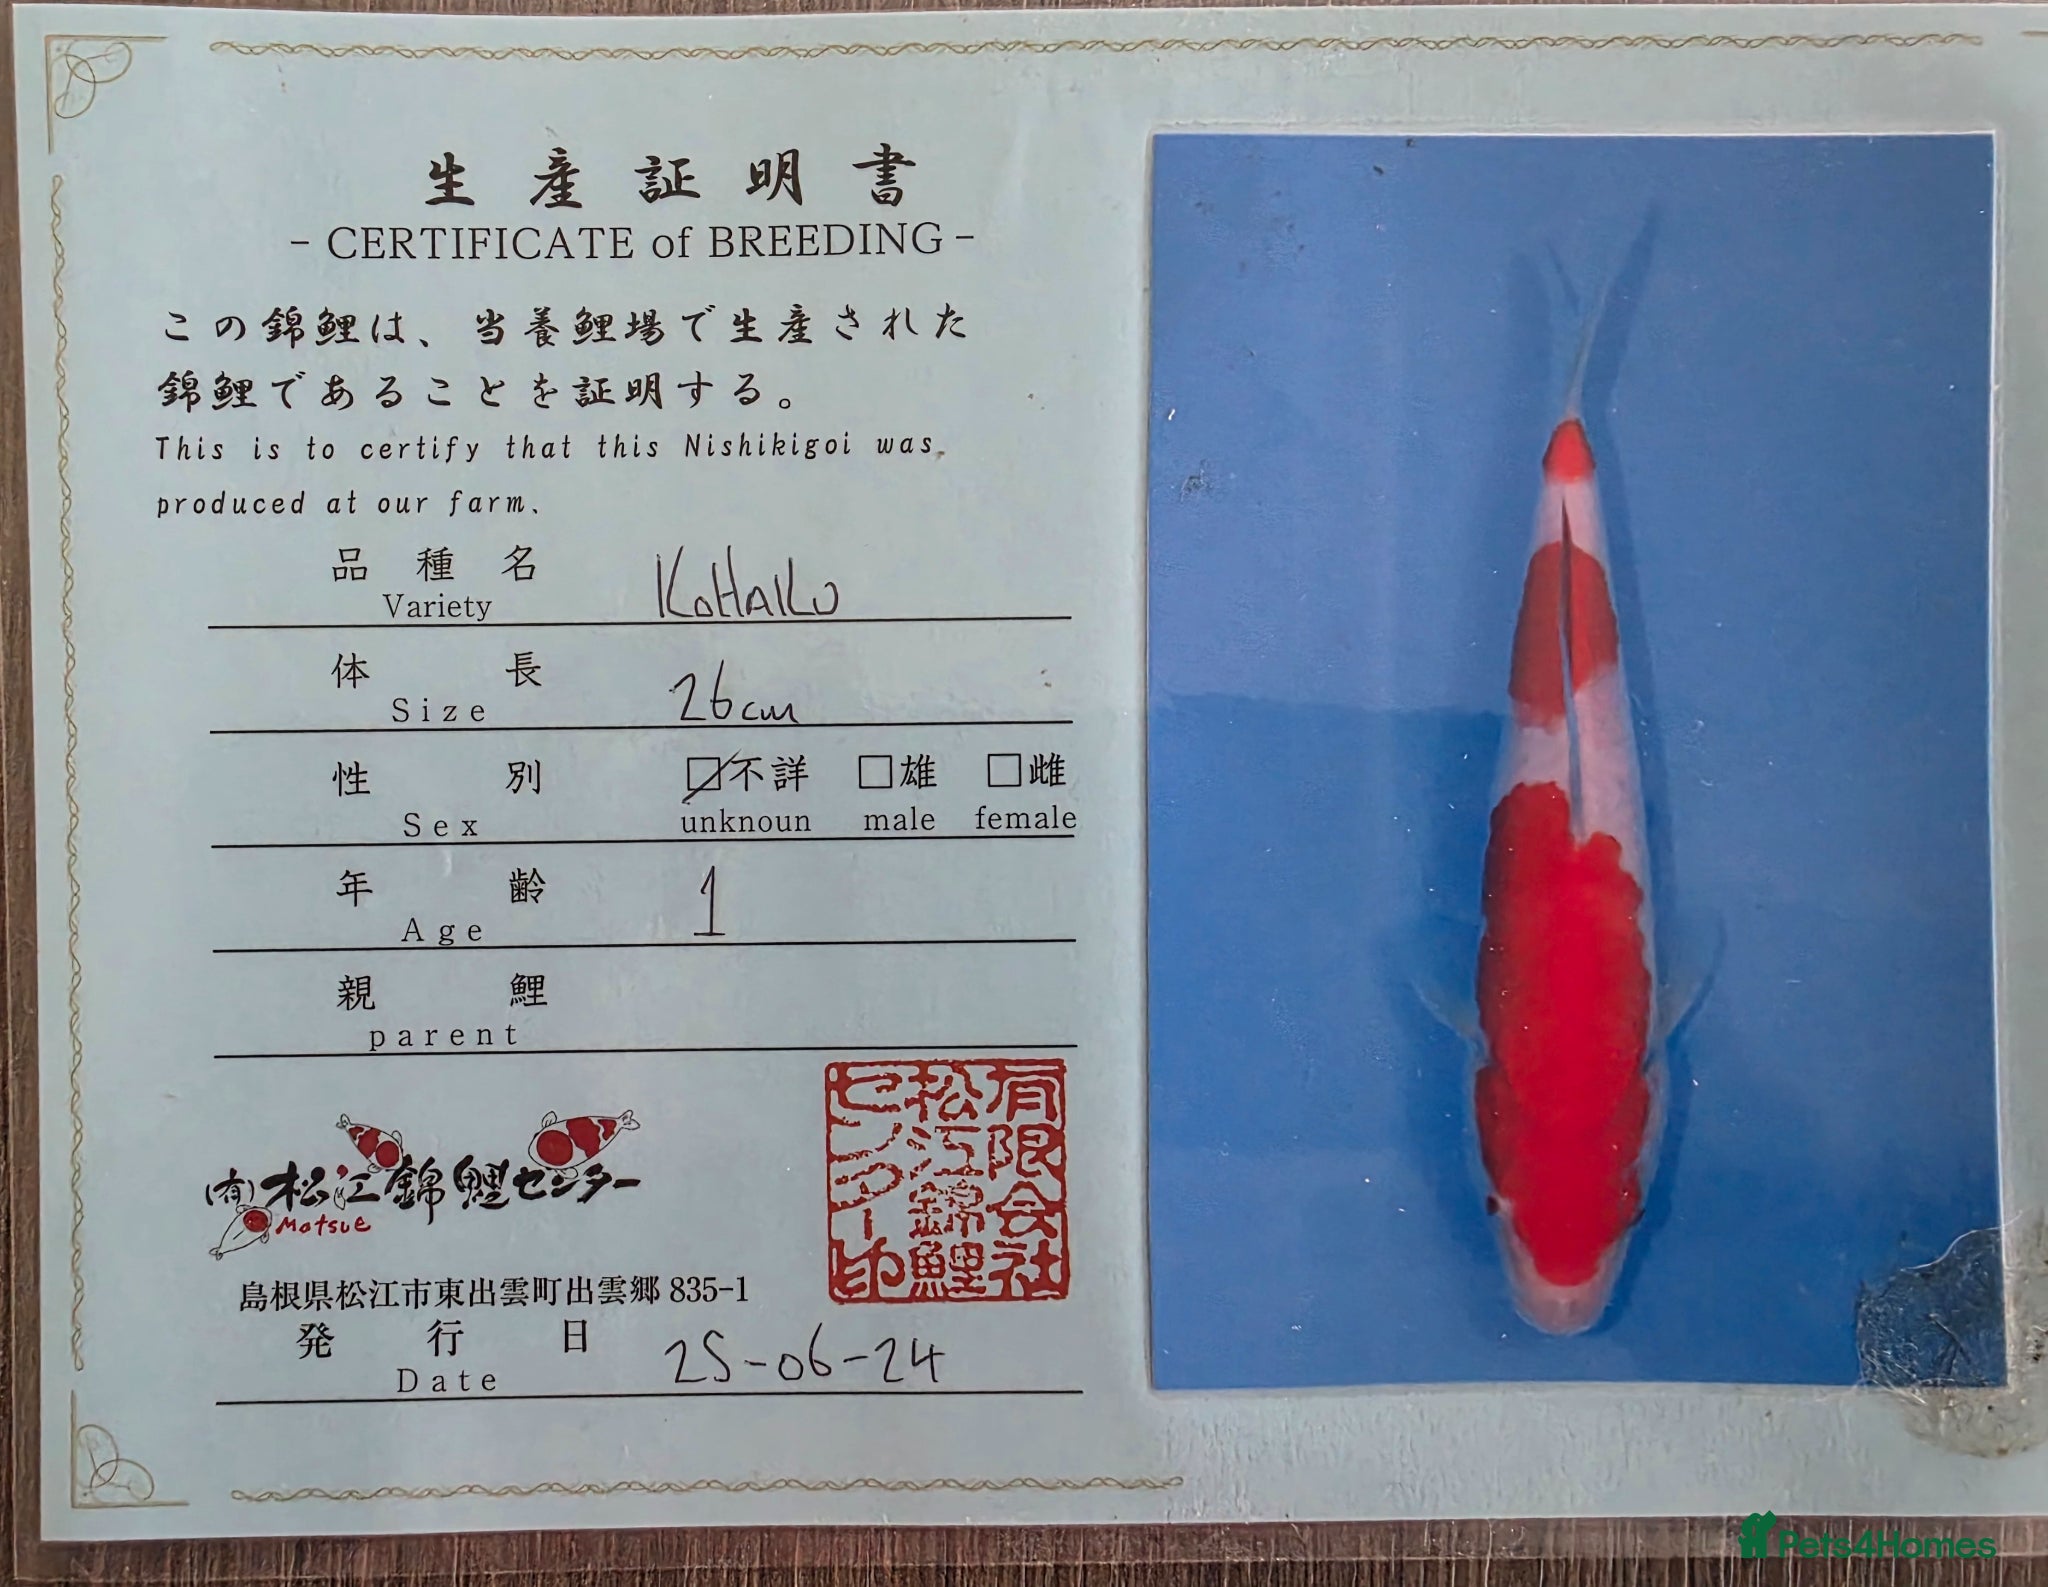 生産証明書
- CERTIFICATE of BREEDING -
この錦鯉は、当養鯉場で生産された
錦鯉であることを証明する。
This is to certify that this Nishikigoi was
produced at our farm.
品種名 KOHAKU
Variety
体長 26cm
Size
性別 不詳 雄 雌
Sex unknoun male female
年齢 1
Age
親鯉
parent
(有)松江錦鯉センター
Matsue
有限会社
松江錦鯉
センター印
島根県松江市東出雲町出雲郷 835-1
発行日 25-06-24
Date
Pets4Homes